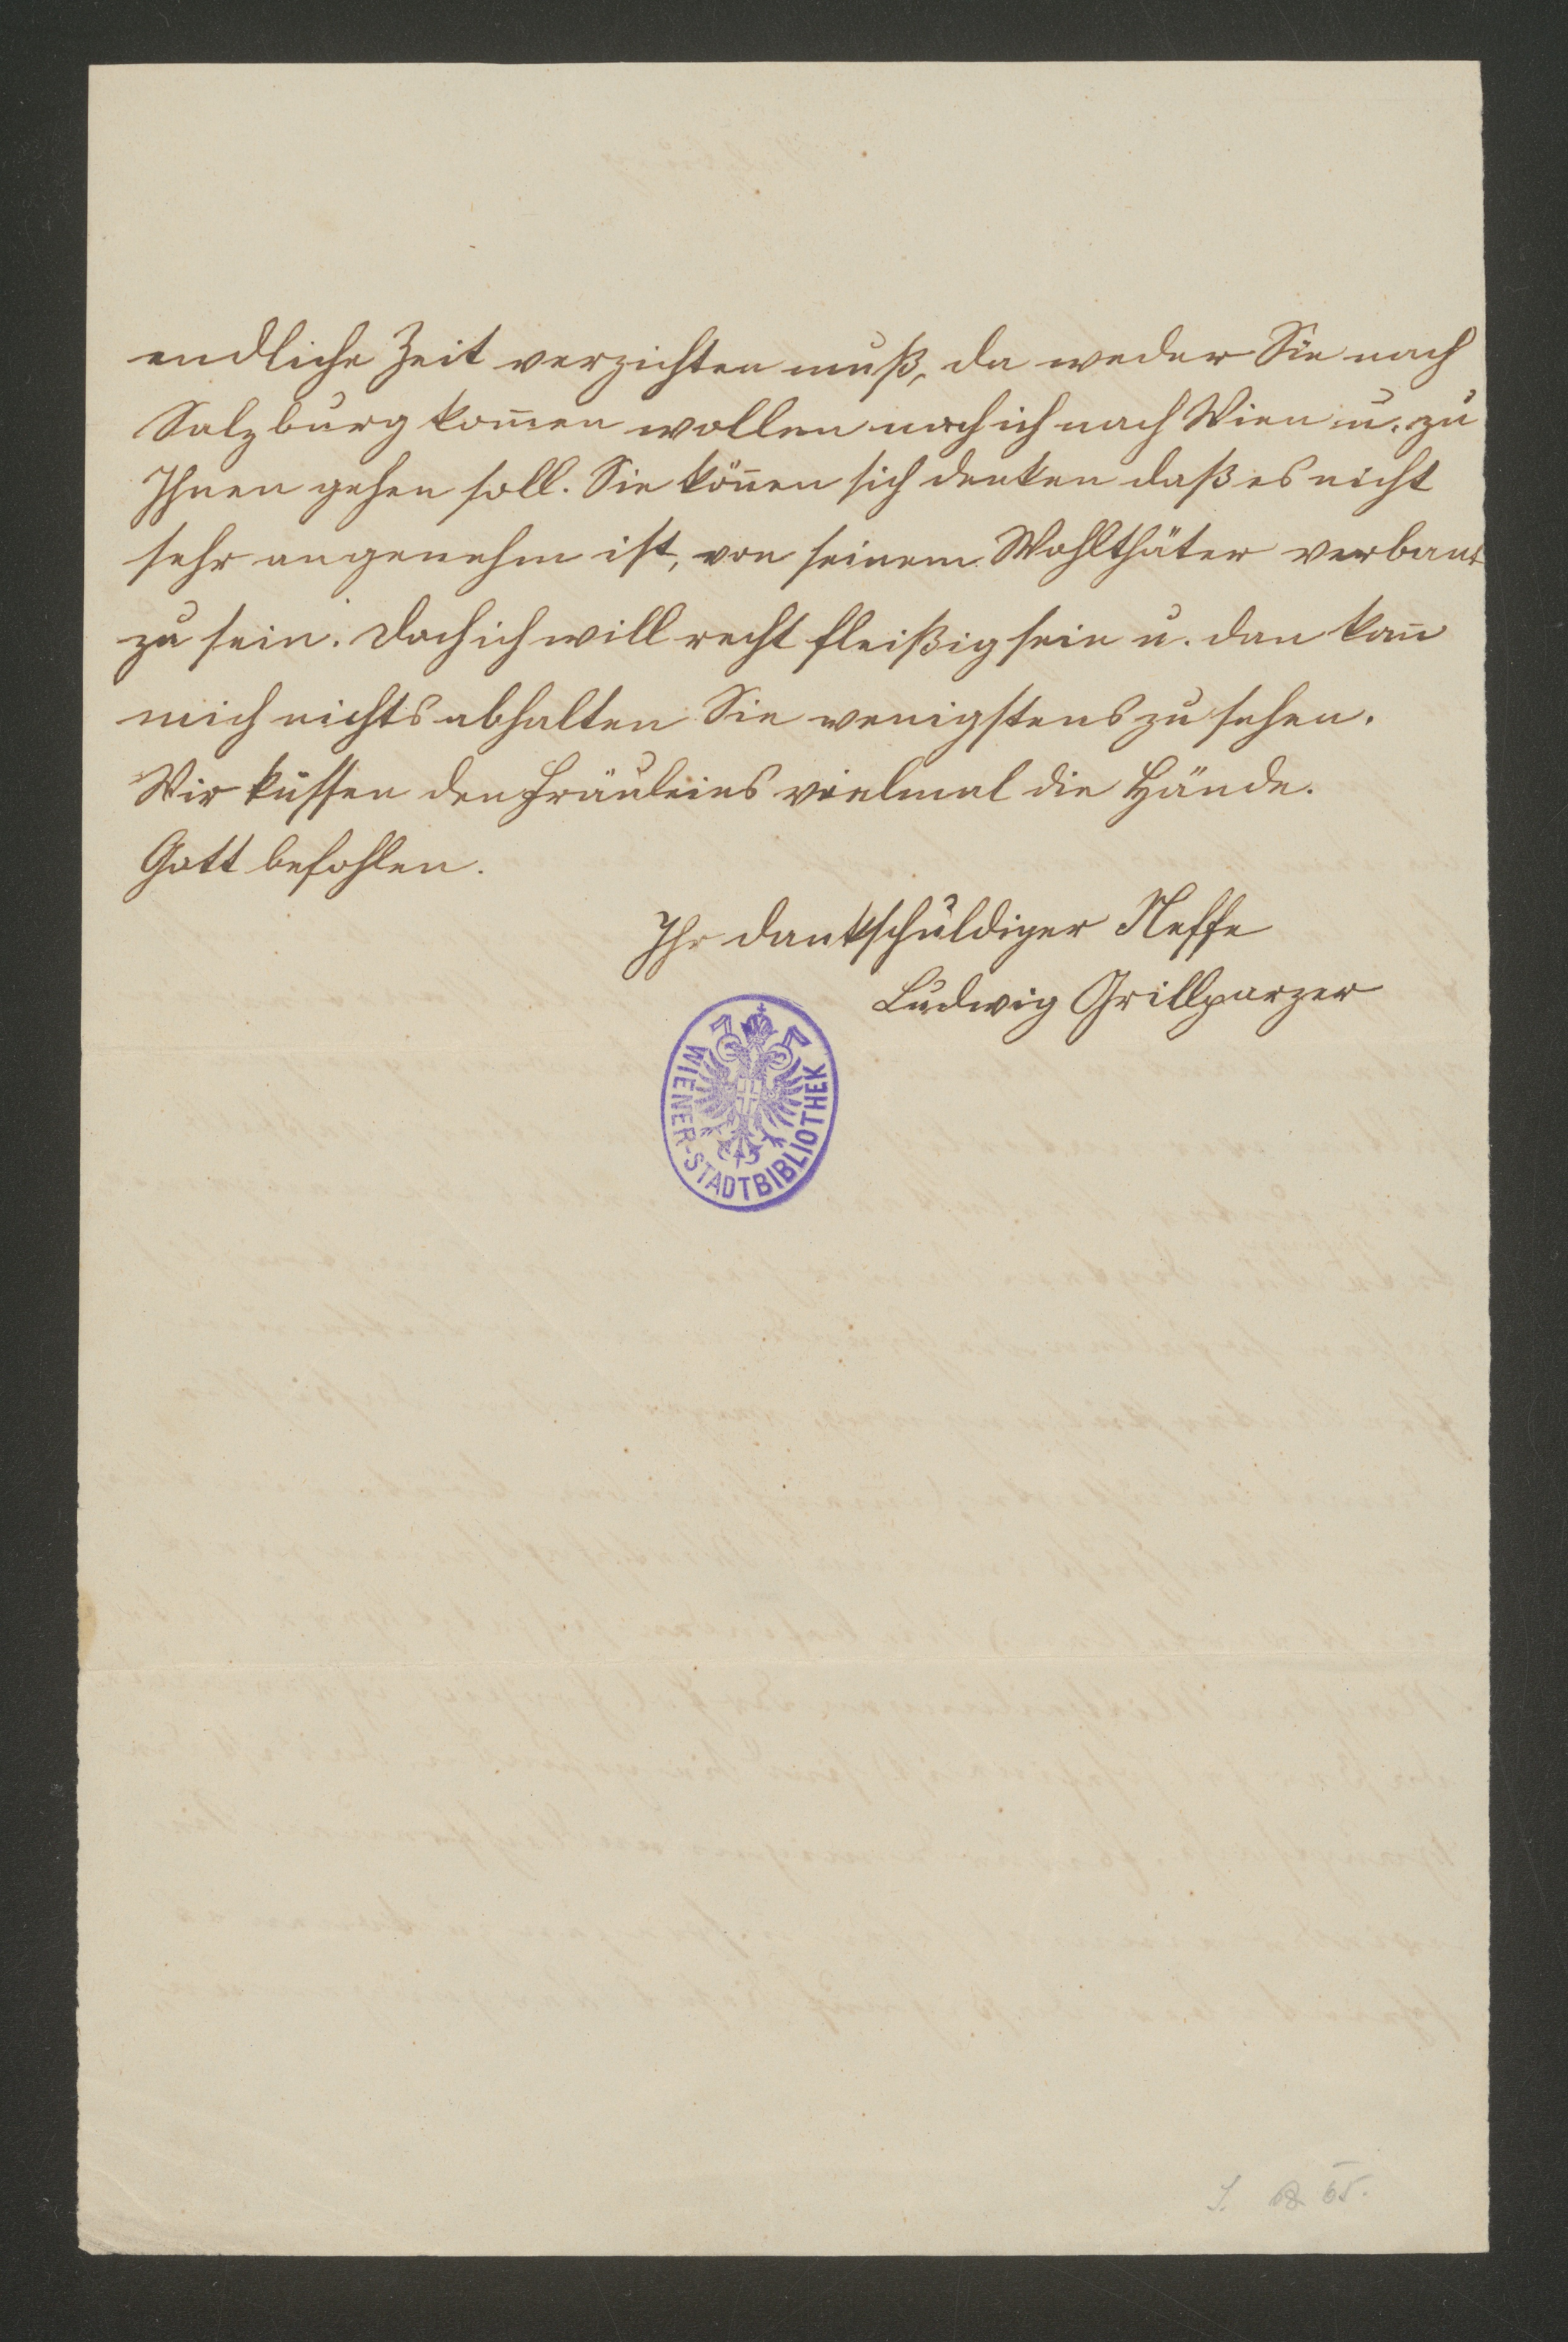 endliche Zeit verzichten muß, da weder Sie nach
Salzburg kom̅en wollen noch ich nach Wien u. zu
Ihnen gehen soll. Sie kön̅en sich denken daß es nicht
sehr angenehm ist, von seinem Wohlthäter verbant
zu sein. Doch ich will recht fleißig sein u. dan kan̅
mich nichts abhalten Sie wenigstens zu sehen.
Wir küssen den Fräuleins vielmal die Hände.
Gott befohlen.
Ihr dankschuldiger Neffe
Ludwig Grillparzer
WIENER-STADTBIBLIOTHEK